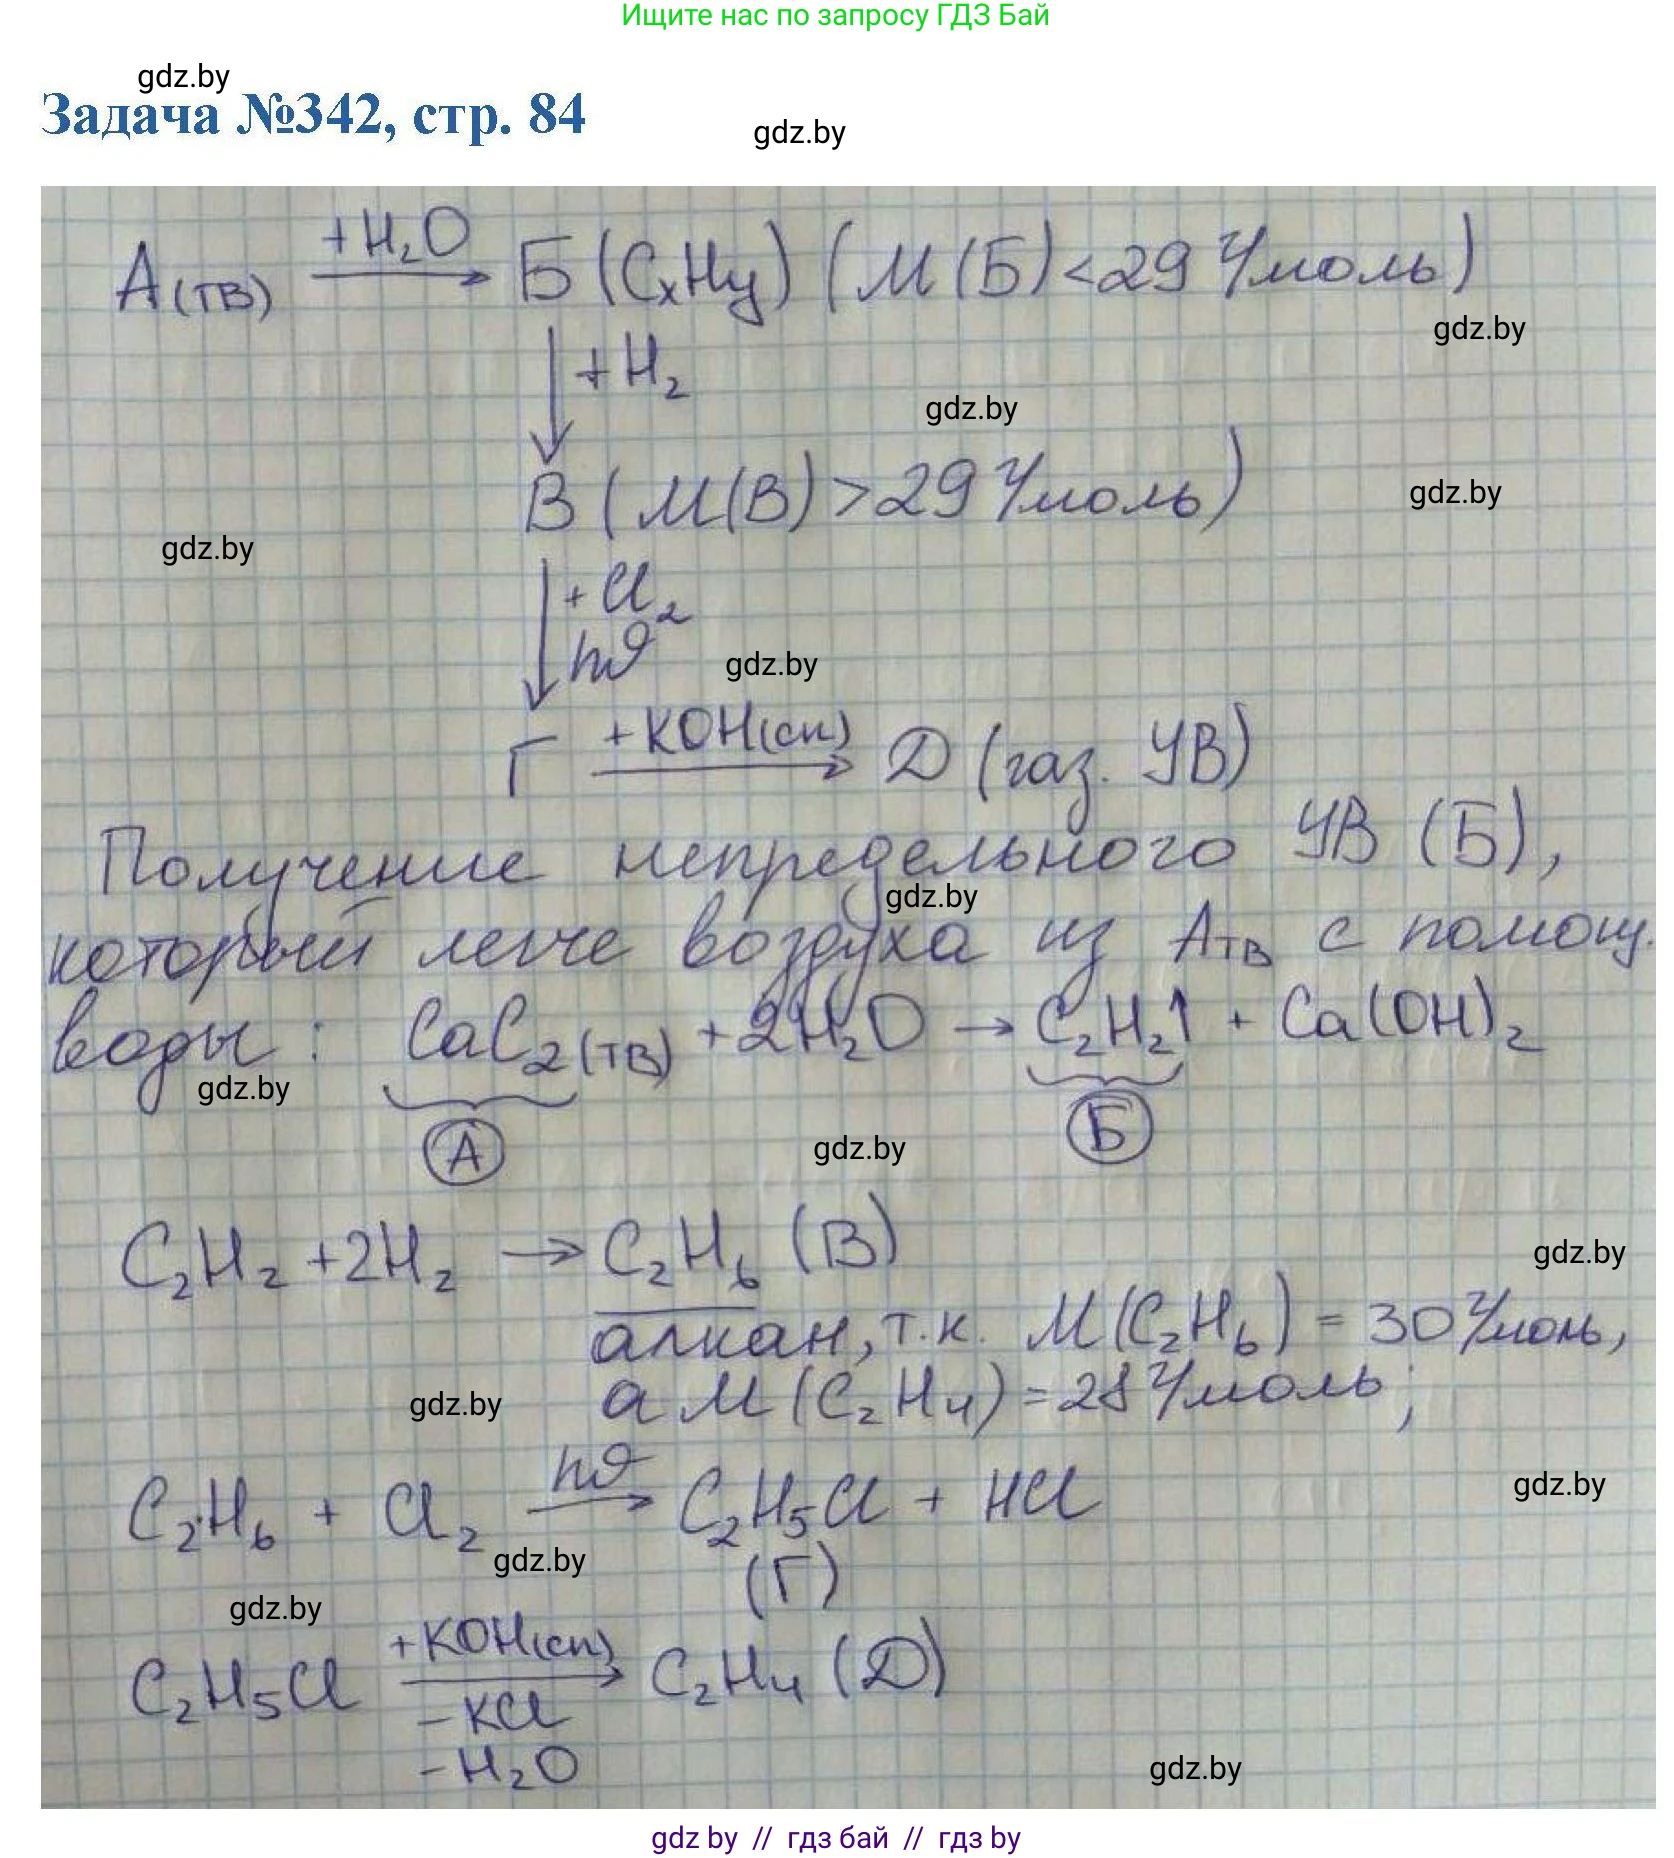 Ищите нас по запросу ГДЗ Бай
gdz.by
Задача №342, стр. 84
gdz.by
A(тв) +H₂O → Б (CxHy) (M(Б) <29 г/моль)
gdz.by
↓ +H₂
gdz.by
В (M(В) >29 г/моль)
gdz.by
gdz.by
↓ +Cl₂
hϑ
gdz.by
Г +KOH(сп) → Д (газ. УВ)
Получение непредельного УВ (Б),
gdz.by
который легче воздуха из Aтв с помощ.
воды: CaC₂(тв) + 2H₂O → C₂H₂↑ + Ca(OH)₂
gdz.by
А Б
gdz.by
C₂H₂ + 2H₂ → C₂H₆ (В)
gdz.by
алкан, т.к. M(C₂H₆) = 30 г/моль,
а M(C₂H₄) = 28 г/моль;
gdz.by
C₂H₆ + Cl₂ hϑ → C₂H₅Cl + HCl
gdz.by
gdz.by
(Г)
gdz.by
C₂H₅Cl +KOH(сп) → C₂H₄ (Д)
-KCl
-H₂O
gdz.by
gdz by // гдз бай // гдз by